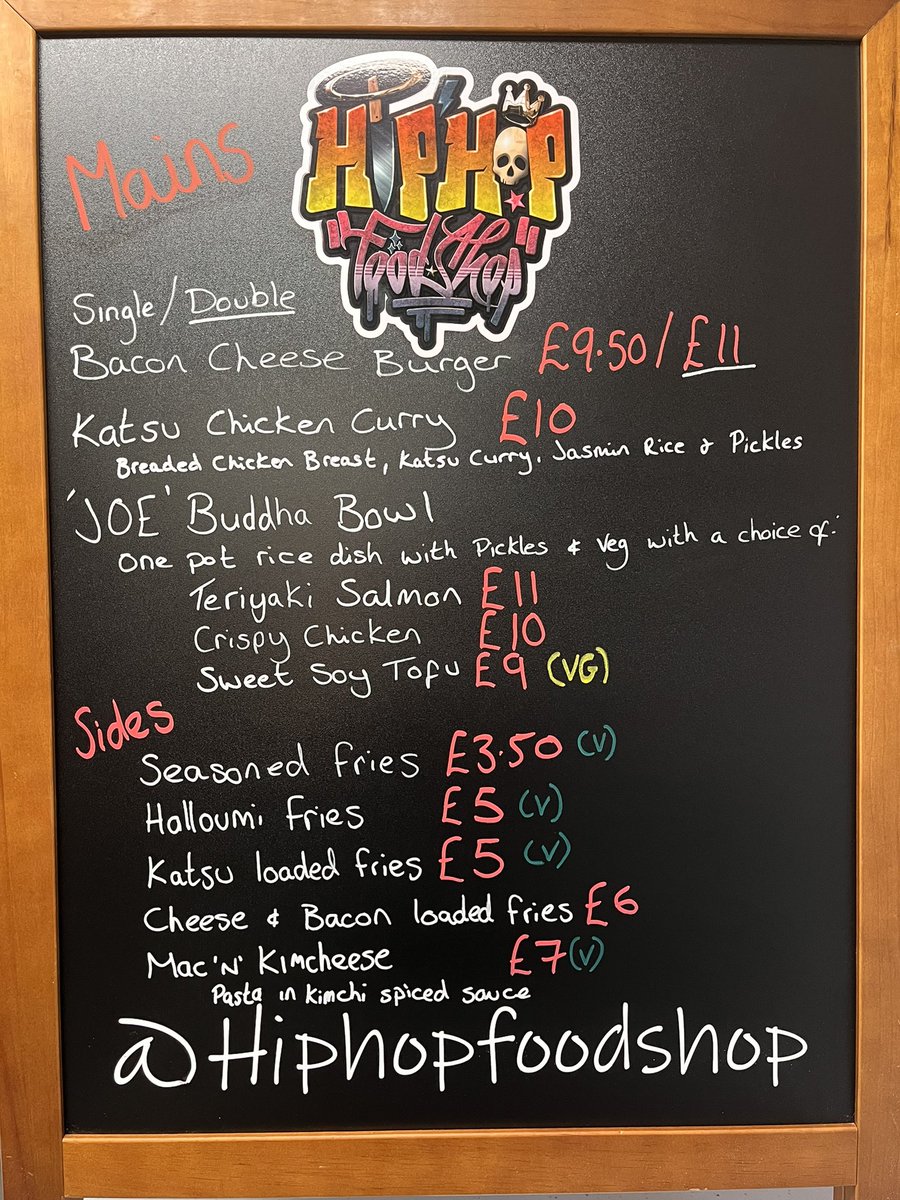 HIP HOP
"Food Shop"
Mains
Single/Double
Bacon Cheese Burger £9.50/£11
Katsu Chicken Curry £10
Breaded Chicken Breast, Katsu Curry, Jasmin Rice & Pickles
'JOE' Buddha Bowl
One pot rice dish with Pickles & Veg with a choice of:
Teriyaki Salmon £11
Crispy Chicken £10
Sweet Soy Tofu £9 (VG)
Sides
Seasoned fries £3.50 (V)
Halloumi fries £5 (V)
Katsu loaded fries £5 (V)
Cheese & Bacon loaded fries £6
Mac 'N' Kimcheese £7 (V)
Pasta in Kimchi spiced sauce
@Hiphopfoodshop